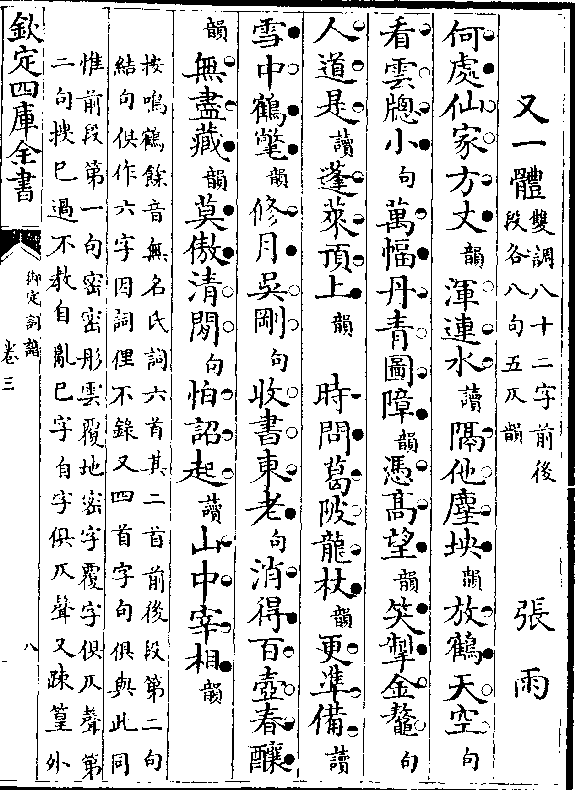 又一體 雙調八十二字前後段各八句五仄韻 張雨
何處仙家方丈韻渾連水讀隔他塵坱韻放鶴天空句
看雲牕小句萬幅丹青圖障韻憑髙望韻笑掣金鼇句
人道是讀蓬萊頂上韻 時問葛陂龍杖韻更準備讀
雪中鶴氅韻修月吳剛句收書東老句消得百壺春釀
韻無盡藏韻莫傲清閒句怕詔起讀山中宰相韻
按鳴鶴餘音無名氏詞六首其二首前後段第二句
結句俱作六字因詞俚不錄又四首字句俱與此同
惟前段第一句密密彤雲覆地密字覆字俱仄聲第
二句拽巳過不教自亂巳字自字俱仄聲又踈篁外
欽定四庫全書
御定詞譜
卷三
八